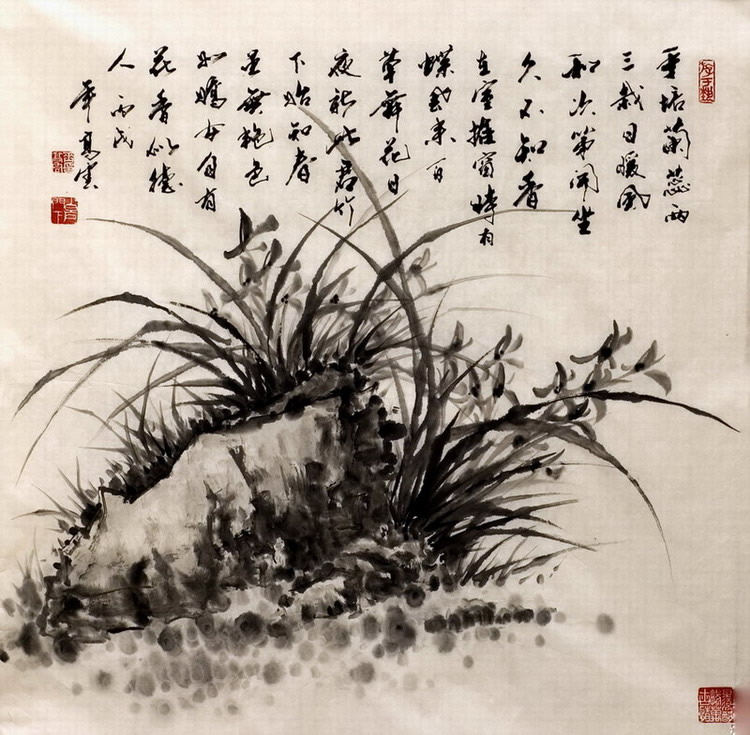 手培蘭蕊两
三栽日暖風
和次第開坐
久不知香
在室推窗時有
蝶飛來百
草花日
夜新此君竹
下始知春
雖無艷色
如嬌女自有
花香似德
人丙戌
年高